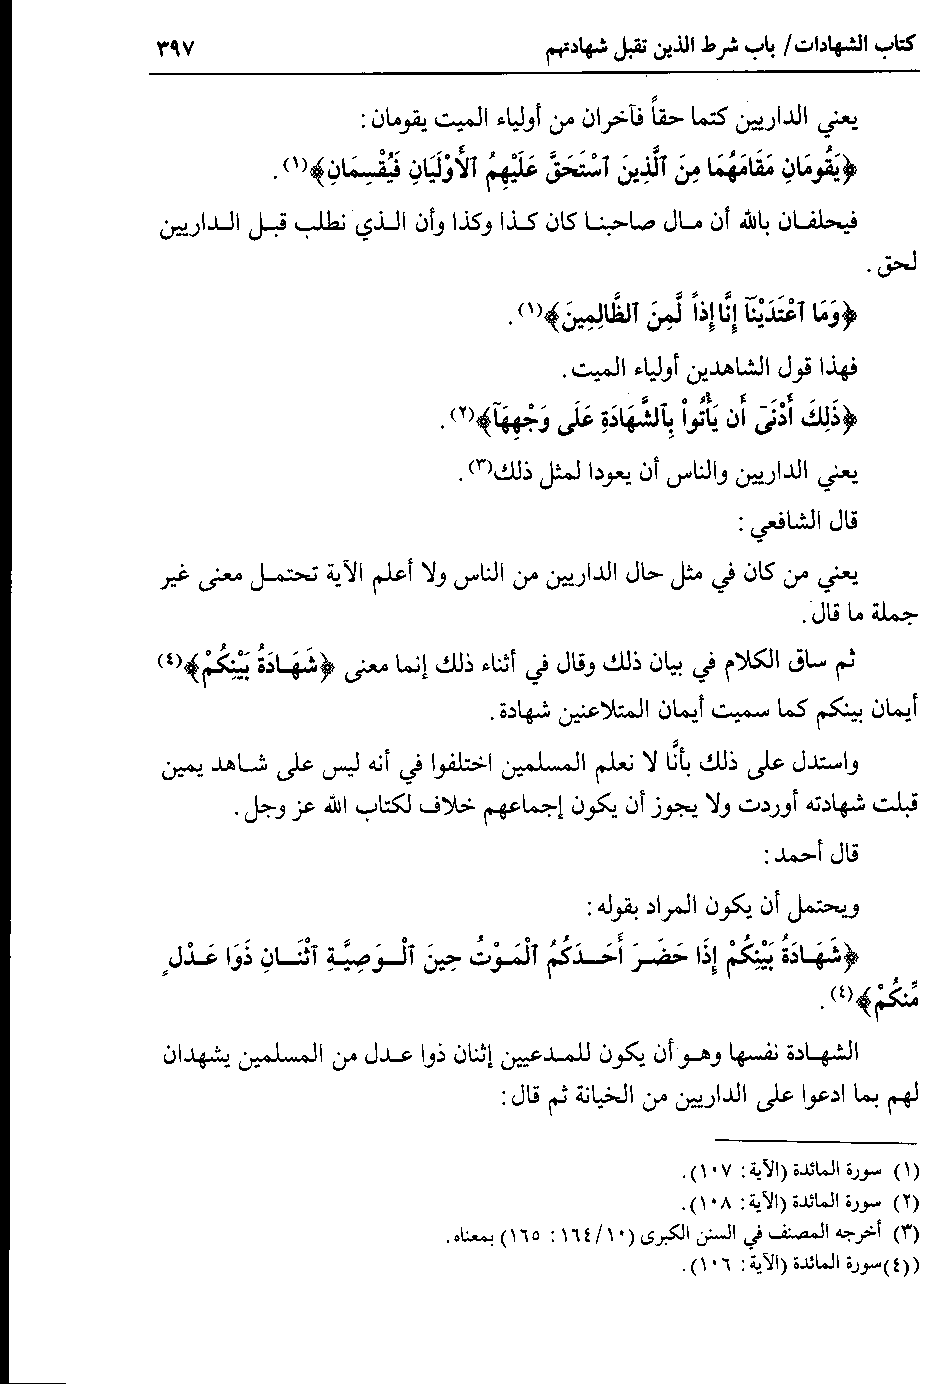 كتاب الشهادات / باب شرط الذين تقبل شهادتهم ٣٩٧
يعني الداريين كتما حقاً فآخران من أولياء الميت يقومان :
﴿يَقُومَانِ مَقَامَهُمَا مِنَ ٱلَّذِينَ ٱسْتَحَقَّ عَلَيْهِمُ ٱلْأَوْلَيَانِ فَيُقْسِمَانِ﴾(١) .
فيحلفـان بالله أن مـال صاحبنـا كان كـذا وكذا وأن الـذي نطلب قبـل الـداريين
لحق .
﴿وَمَا ٱعْتَدَيْنَآ إِنَّا إِذاً لَّمِنَ ٱلظَّالِمِينَ﴾(١) .
فهذا قول الشاهدين أولياء الميت .
﴿ذَلِكَ أَدْنَىٓ أَن يَأْتُواْ بِٱلشَّهَادَةِ عَلَى وَجْهِهَآ﴾(٢) .
يعني الداريين والناس أن يعودا لمثل ذلك(٣) .
قال الشافعي :
يعني من كان في مثل حال الداريين من الناس ولا أعلم الآية تحتمـل معنى غير
جملة ما قال .
ثم ساق الكلام في بيان ذلك وقال في أثناء ذلك إنما معنى ﴿شَهَـادَةُ بَيْنِكُمْ﴾(٤)
أيمان بينكم كما سميت أيمان المتلاعنين شهادة .
واستدل على ذلك بأنَّا لا نعلم المسلمين اختلفوا في أنه ليس على شـاهد يمين
قبلت شهادته أوردت ولا يجوز أن يكون إجماعهم خلاف لكتاب الله عز وجل .
قال أحمد :
ويحتمل أن يكون المراد بقوله :
﴿شَهَـادَةُ بَيْنِكُمْ إِذَا حَضَـرَ أَحَـدَكُمُ ٱلْمَـوْتُ حِينَ ٱلْـوَصِيَّـةِ ٱثْنَـانِ ذَوَا عَـدْلٍ
مِّنكُمْ﴾(٤) .
الشهـادة نفسها وهـو أن يكون للمـدعيين إثنان ذوا عـدل من المسلمين يشهدان
لهم بما ادعوا على الداريين من الخيانة ثم قال :
(١) سورة المائدة (الآية : ١٠٧) .
(٢) سورة المائدة (الآية : ١٠٨) .
(٣) أخرجه المصنف في السنن الكبرى (١٠/ ١٦٤ : ١٦٥) بمعناه .
((٤)سورة المائدة (الآية : ١٠٦) .